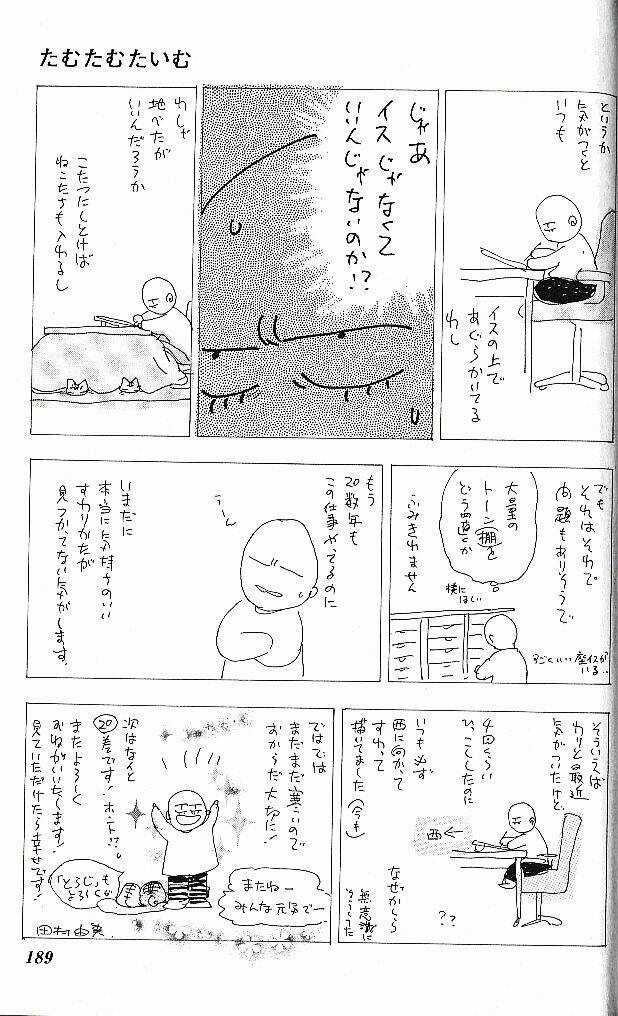 たむたむたいむ
というか
気がつくと
いつも
イスの上で
あぐらかいてる
わし
じゃあ
イスじゃなくて
いいんじゃないのか!?
わしゃ
地べたが
いいんだろうか
こたつにしとけば
ねこたちも入れるし
でも
それはそれで
問題もありそうで
大量の
トーン棚を
どう置くとか
ふみきれません
横に
ほしい
すごくいい座イスが
いる…
もう
20数年も
この仕事やってるのに
うーん
いまだに
本当に気持ちのいい
すわりかたが
見つかってない気がします
そういえば
わりと最近
気がついたけど
4回くらい
ひっこしたのに
いつも必ず
西に向かって
すわって
描いてました(今も)
西←
??
なぜかしら
無意識に
ではでは
まだまだ寒いので
おからだ大切に!
次はなんと
20巻です!ホント!?
またよろしく
おねがいいたします!
見ていただけたら幸せです!
またねー
みんな元気でー
「とらじ」も
よろしくな
田村由美
189